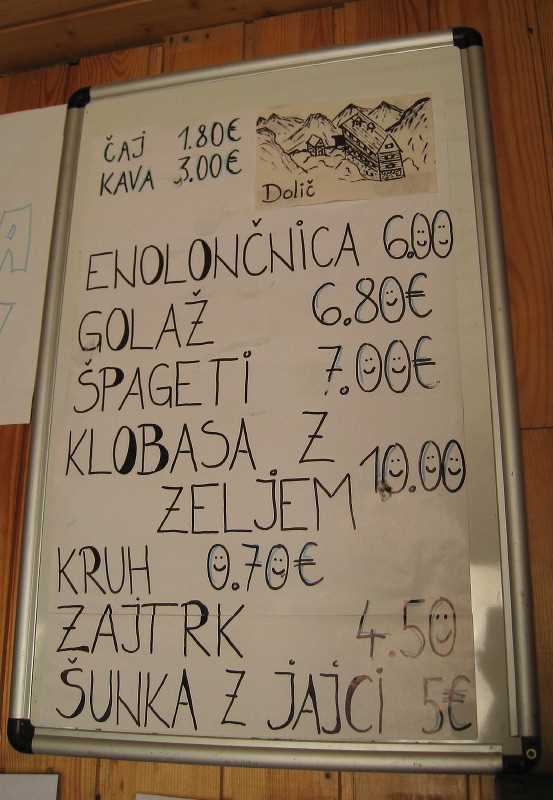 ČAJ 1.80€
KAVA 3.00€
Dolič
ENOLONČNICA 6.00
GOLAŽ 6.80€
ŠPAGETI 7.00€
KLOBASA Z
ZELJEM 10.00
KRUH 0.70€
ZAJTRK 4.50
ŠUNKA Z JAJCI 5€